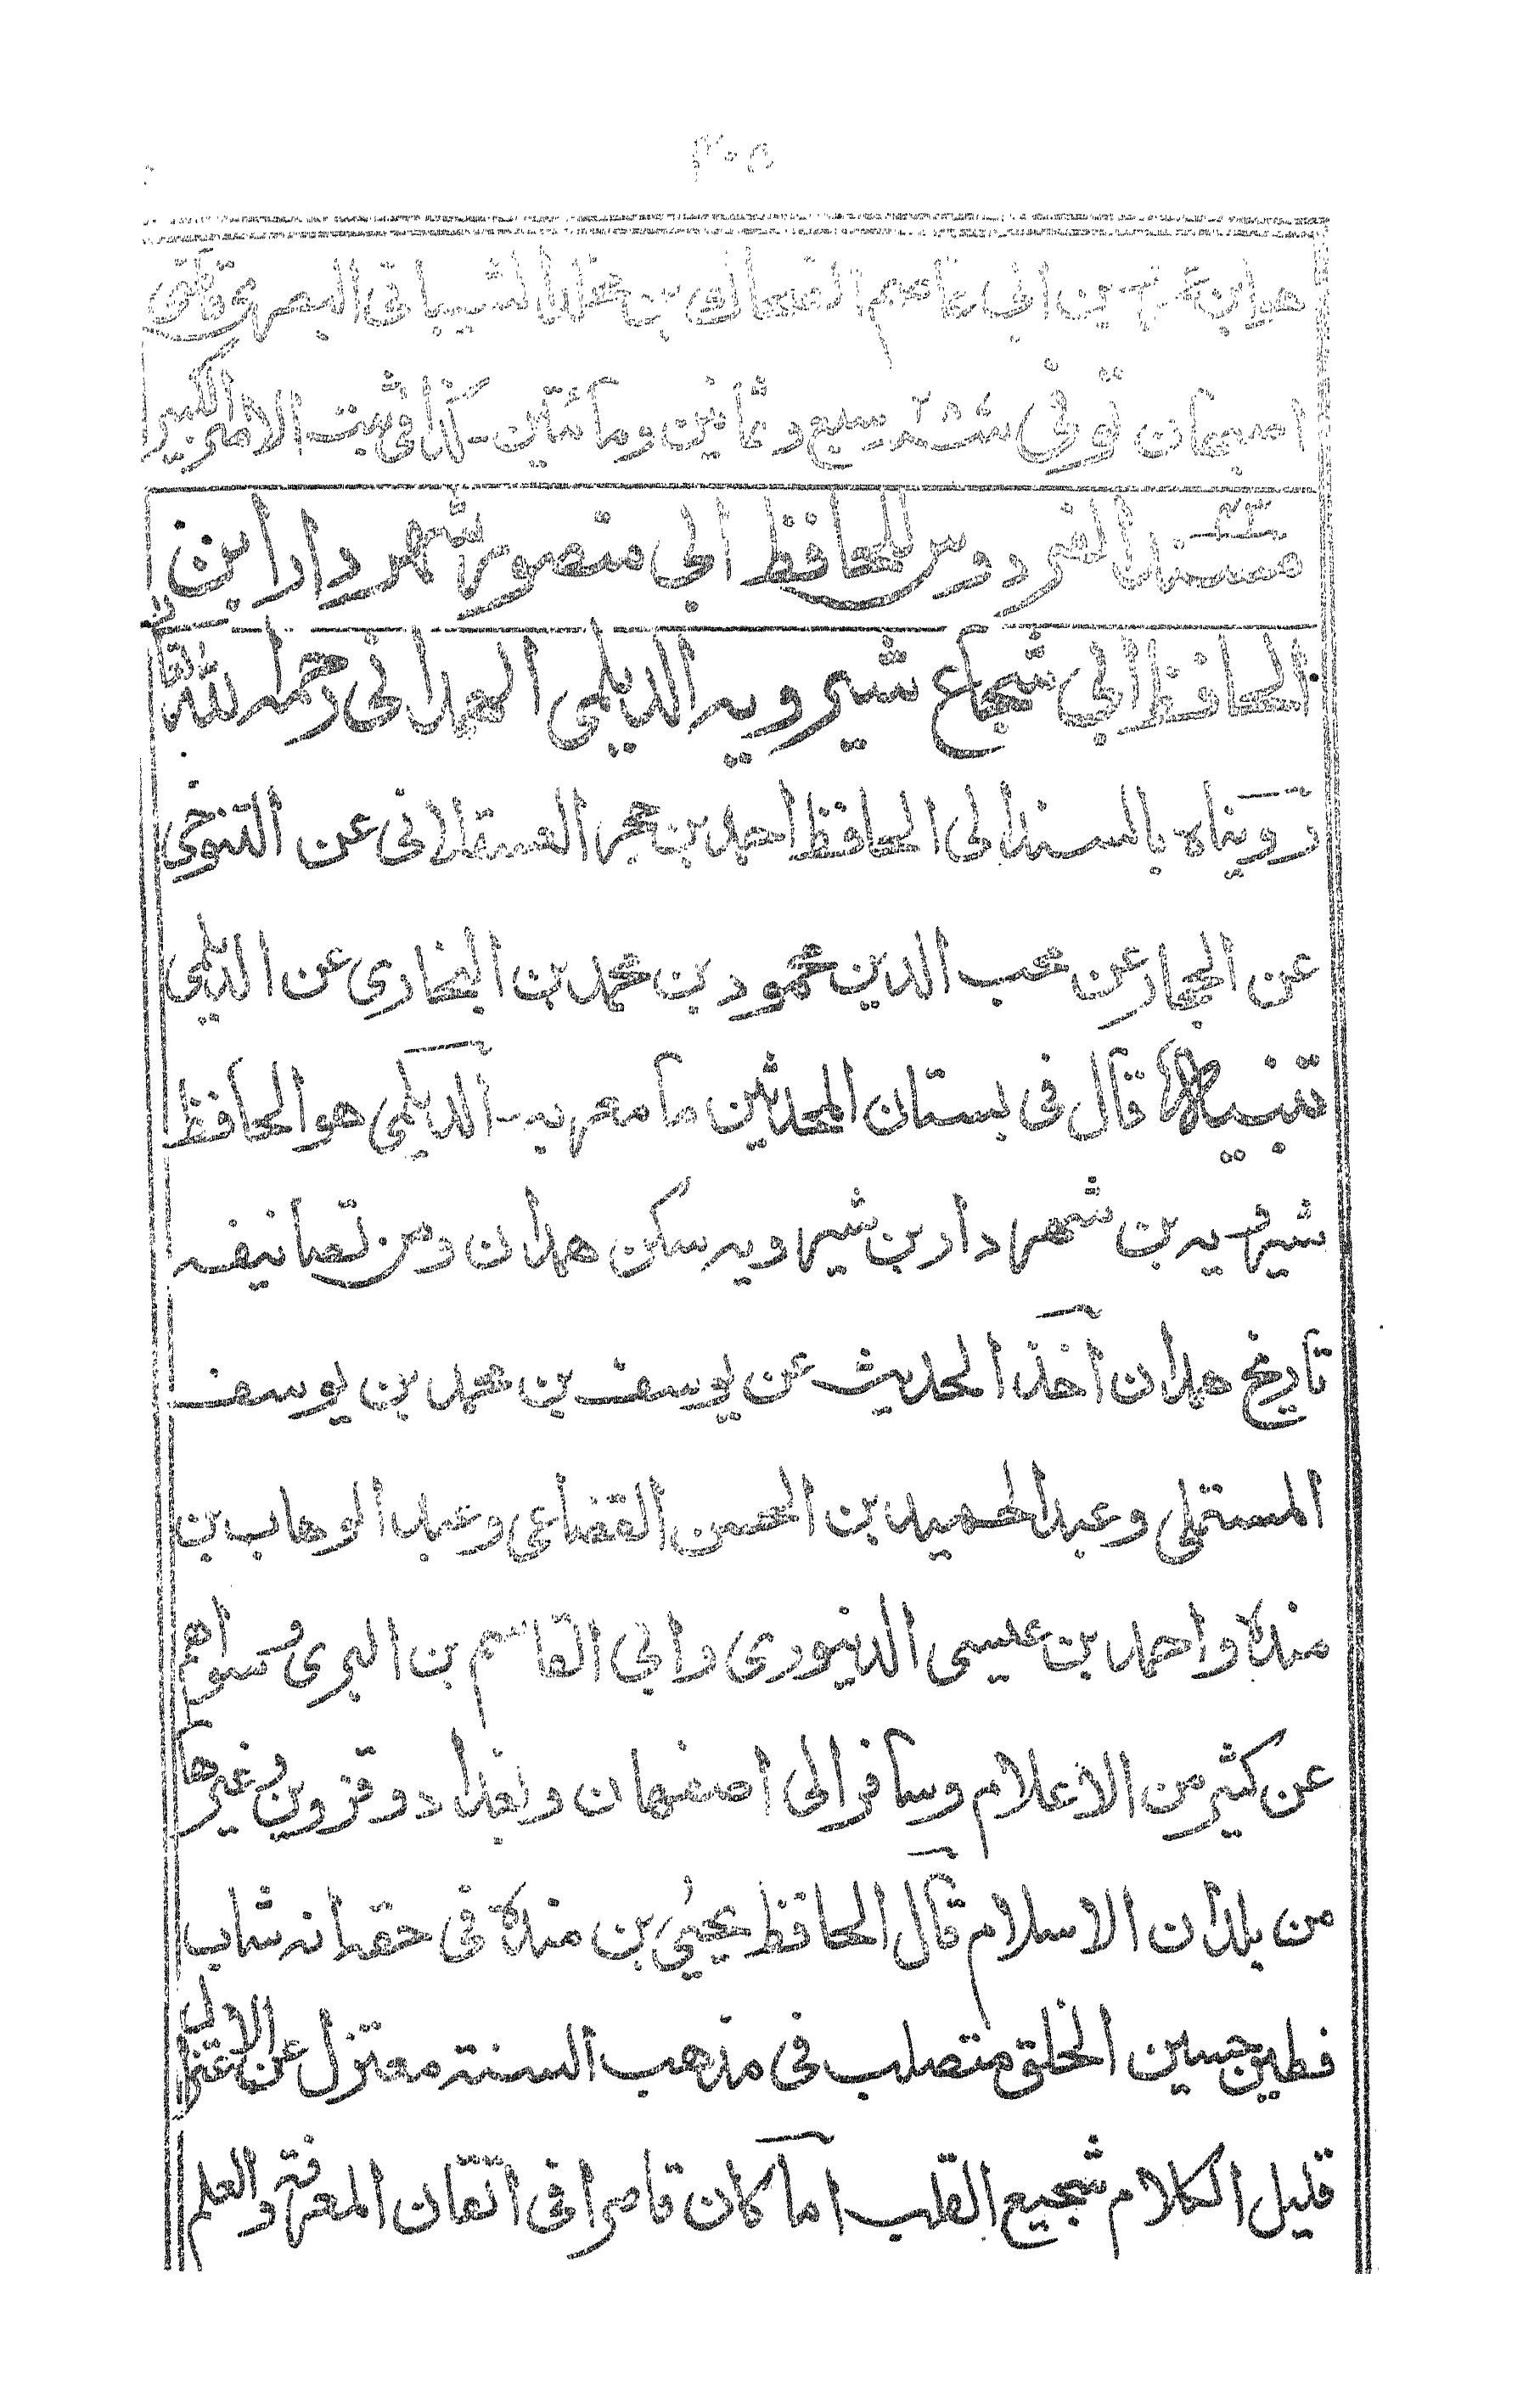 ٣٠٥
هو ابن عمرو بن ابى عاصم الضحاك بن مخلد الشيبانى البصرى قاضى
اصبهان توفى سنة ٢٨٧ سبع وثمانين ومأتين - كذا فى ثبت الامير الكبير
مسند الفردوس للحافظ ابى منصور شهردار ابن
الحافظ ابى شجاع شيرويه الديلمى الهمدانى رحمه الله تعالى
رويناه بالسند الى الحافظ احمد بن حجر العسقلانى عن التنوخى
عن الحجار عن محب الدين محمود بن محمد بن البخارى عن الديلمى
تنبيه قال فى بستان المحدثين ما معربه - الديلمى هو الحافظ
شيرويه بن شهردار بن شيرويه سكن همدان ومن تصانيفه
تاريخ همدان اخذ الحديث عن يوسف بن محمد بن يوسف
المستملى وعبد الحميد بن الحسن القضاعى وعبد الوهاب بن
منده واحمد بن عيسى الدينورى وابى القاسم بن البرى وسواهم
عن كثير من الاعلام وسافر الى اصفهان وبغداد وقزوين وغيرها
من بلدان الاسلام قال الحافظ يحيى بن منده فى حقه انه شاب
فطين حسين الخلق متصلب فى مذهب السنة معتزل عن الاعتزال
قليل الكلام شجيع القلب اما كان قاصرا فى اتقان المعرفة والعلم